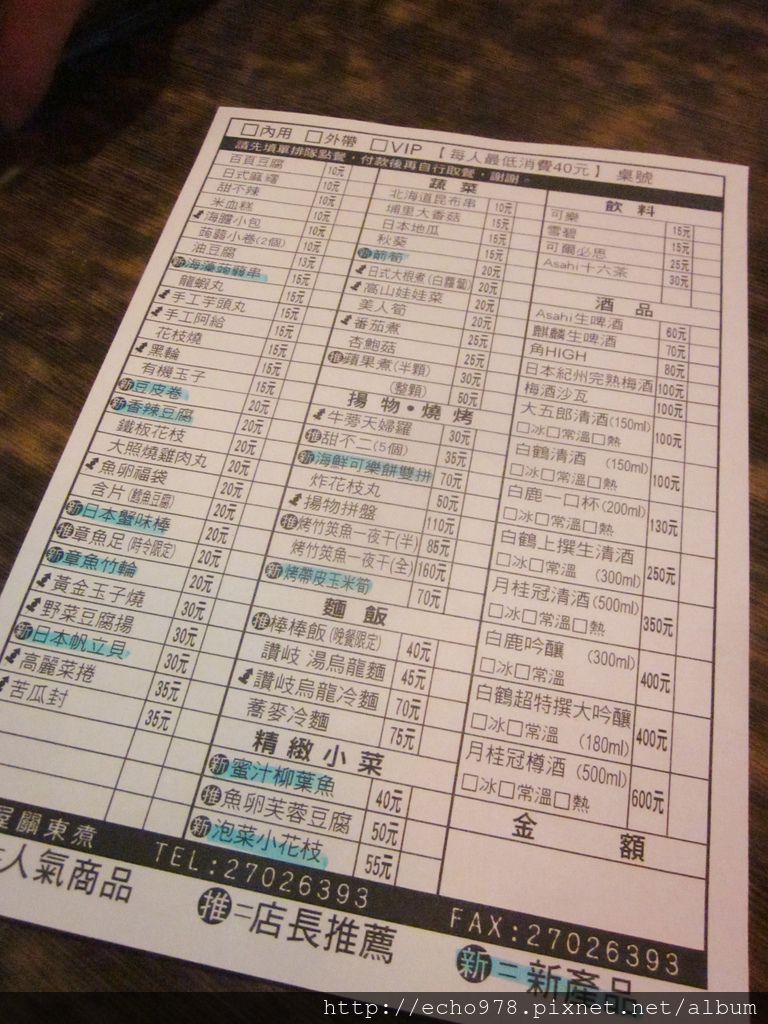 □內用 □外帶 □VIP 【每人最低消費40元】 桌號
請先填單排隊點餐，付款後再自行取餐，謝謝。
百頁豆腐 10元
日式麻糬 10元
甜不辣 10元
米血糕 10元
海膽小包 10元
蒟蒻小卷(2個) 10元
油豆腐 13元
新 海藻蒟蒻串 15元
龍蝦丸 15元
手工芋頭丸 15元
手工阿給 15元
花枝燒 15元
黑輪 15元
有機玉子 15元
新 豆皮卷 20元
新 香辣豆腐 20元
鐵板花枝 20元
大照燒雞肉丸 20元
魚卵福袋 20元
含片(鱈魚豆腐) 20元
新 日本蟹味棒 20元
推 章魚足(時令限定) 20元
新 章魚竹輪 20元
黃金玉子燒 30元
野菜豆腐揚 30元
新 日本帆立貝 30元
高麗菜捲 35元
苦瓜封 35元
蔬菜
北海道昆布串 10元
埔里大香菇 15元
日本地瓜 15元
秋葵 15元
新 箭筍 20元
日式大根煮(白蘿蔔) 20元
高山娃娃菜 20元
美人筍 20元
番茄煮 25元
杏鮑菇 25元
推 蘋果煮(半顆) 30元
(整顆) 50元
揚物•燒烤
牛蒡天婦羅 30元
推 甜不二(5個) 35元
新 海鮮可樂餅雙拼 70元
炸花枝丸 50元
揚物拼盤 110元
推 烤竹筴魚一夜干(半) 85元
烤竹筴魚一夜干(全) 160元
新 烤帶皮玉米筍 70元
麵飯
推 棒棒飯(晚餐限定) 40元
讚岐 湯烏龍麵 45元
讚岐烏龍冷麵 70元
蕎麥冷麵 75元
精緻小菜
新 蜜汁柳葉魚 40元
推 魚卵芙蓉豆腐 50元
新 泡菜小花枝 55元
飲料
可樂 15元
雪碧 15元
可爾必思 25元
Asahi十六茶 30元
酒品
Asahi生啤酒 60元
麒麟生啤酒 70元
角HIGH 80元
日本紀州完熟梅酒 100元
梅酒沙瓦 100元
大五郎清酒(150ml) 100元
□冰□常溫□熱
白鶴清酒 (150ml) 100元
□冰□常溫□熱
白鹿一口杯(200ml) 130元
□冰□常溫□熱
白鶴上撰生清酒 250元
□冰□常溫 (300ml)
月桂冠清酒(500ml) 350元
□冰□常溫□熱
白鹿吟釀 (300ml) 400元
□冰□常溫
白鶴超特撰大吟釀 400元
□冰□常溫 (180ml)
月桂冠樽酒 (500ml) 600元
□冰□常溫□熱
金額
屋關東煮 TEL:27026393 FAX:27026393
人氣商品 推=店長推薦 新=新產品
http://echo978.pixnet.net/album